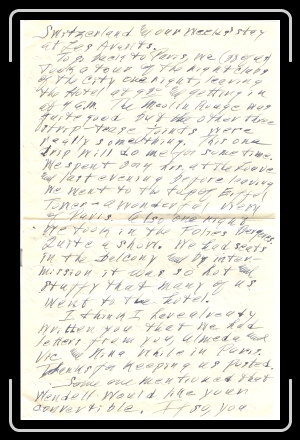 Switzerland & our weeks' stay
at Les Avants.
To go back to Paris, we (299 of us)
took a tour of the night clubs
of the City one night, leaving
the hotel at 9 & getting in
at 4 a.m. The Moulin Rouge was
quite good but the other three
strip-tease joints were
really something. This one
trip will do me for sometime.
We spent 2 at the Louvre
& last evening before leaving
we went to the top of Eiffel
Tower - a wonderful view
of Paris. Also one night
we took in the Folies Bergeres.
Quite a show. We had seats
in the balcony & by inter-
mission it was so hot and
stuffy that many of us
went to the hotel.
I think I have already
written you that we had
letters from you, Almeda and
Vic & Nina while in Paris.
Thanks for keeping us posted.
Some one mentioned that
Wendell would like your
convertible. If so, you